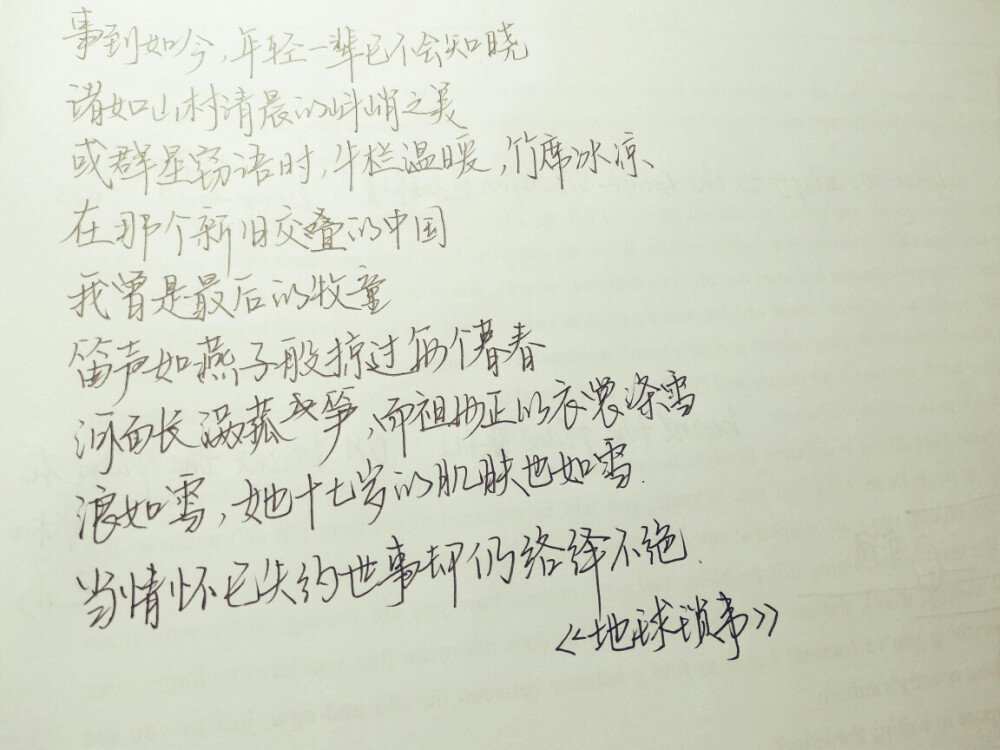 事到如今,年轻一辈已不会知晓
诸如山村清晨的料峭之美
或群星窃语时,牛栏温暖,竹席冰凉、
在那个新旧交叠的中国
我曾是最后的牧童
笛声如燕子般掠过每个暮春
河面长满菰笋,而祖母正的衣裳涤雪
浪如雪,她十七岁的肌肤也如雪.
当情怀已失约世事却仍络绎不绝.
《地球琐事》